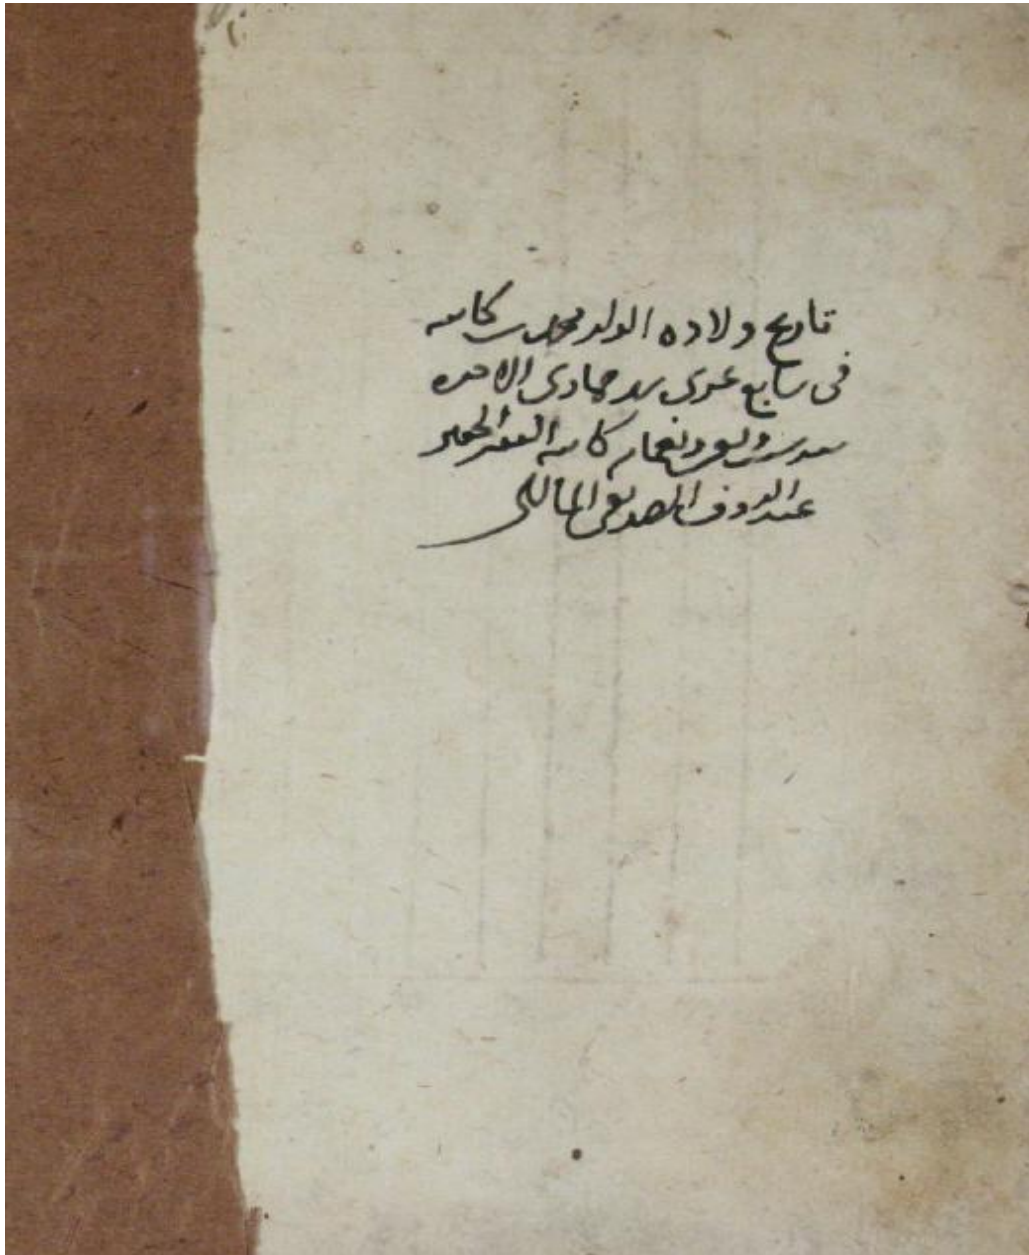 تاريخ ولادة الولد محمد بن كاتبه
في سابع عشري شهر جمادى الاخره
سنة وتسعمايه كاتبه الفقير الحقير
عبد الروف الصديقي المالكي